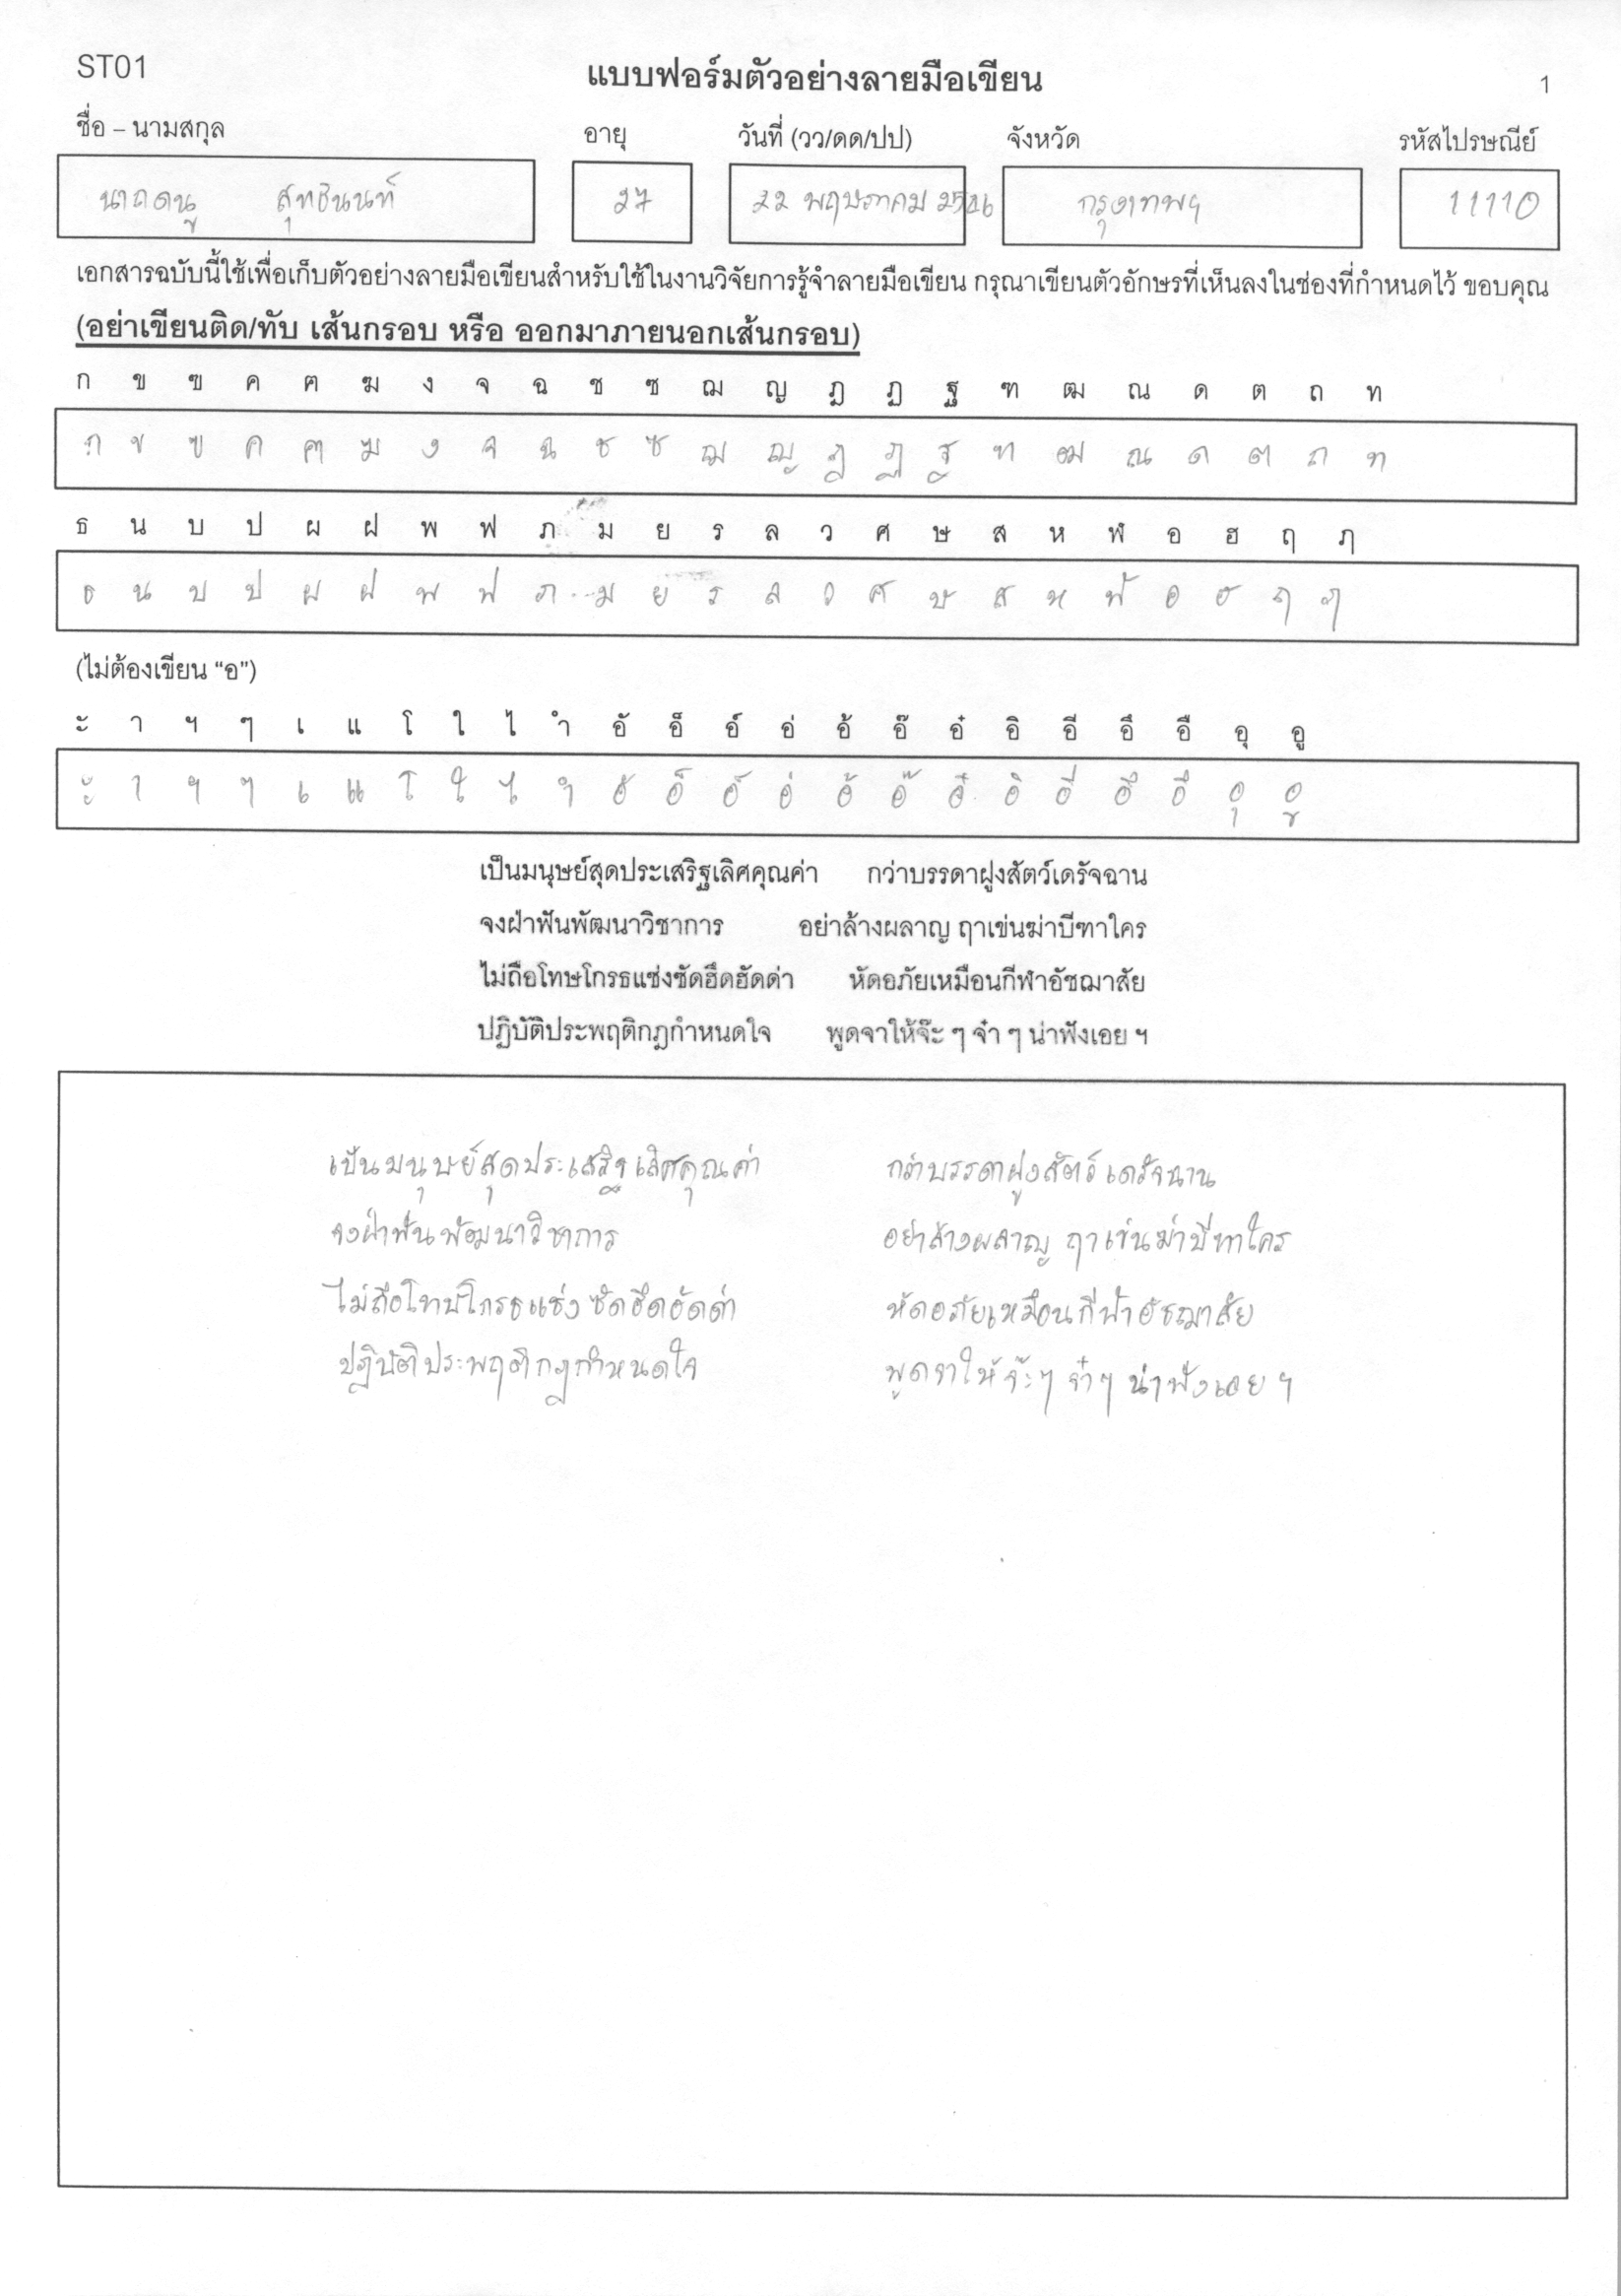 ST01
แบบฟอร์มตัวอย่างลายมือเขียน
1
ชื่อ – นามสกุล อายุ วันที่ (วว/ดด/ปป) จังหวัด รหัสไปรษณีย์
สุทธินนท์ 27 22 พฤษภาคม กรุงเทพฯ 11110
เอกสารฉบับนี้ใช้เพื่อเก็บตัวอย่างลายมือเขียนสำหรับใช้ในงานวิจัยการรู้จำลายมือเขียน กรุณาเขียนตัวอักษรที่เห็นลงในช่องที่กำหนดไว้ ขอบคุณ
(อย่าเขียนติด/ทับ เส้นกรอบ หรือ ออกมาภายนอกเส้นกรอบ)
ก ข ฃ ค ฅ ฆ ง จ ฉ ช ซ ฌ ญ ฎ ฏ ฐ ฑ ฒ ณ ด ต ถ ท
ก ข ฃ ค ฅ ฆ ง จ ฉ ช ซ ฌ ญ ฎ ฏ ฐ ฑ ฒ ณ ด ต ถ ท
ธ น บ ป ผ ฝ พ ฟ ภ ม ย ร ล ว ศ ษ ส ห ฬ อ ฮ ฤ ภ
ธ น บ ป ผ ฝ พ ฟ ภ ม ย ร ล ว ศ ษ ส ห ฬ อ ฮ ฤ ภ
(ไม่ต้องเขียน “อ”)
ะ า ฯ ๆ เ แ โ ใ ไ ำ อั อ็ อ์ อ่ อ้ อ๊ อ๋ อิ อี อึ อื อุ อู
ะ า ฯ ๆ เ แ โ ใ ไ ำ อั อ็ อ์ อ่ อ้ อ๊ อ๋ อิ อี อึ อื อุ อู
เป็นมนุษย์สุดประเสริฐเลิศคุณค่า กว่าบรรดาฝูงสัตว์เดรัจฉาน
จงฝ่าฟันพัฒนาวิชาการ อย่าล้างผลาญ ฤาเข่นฆ่าบีฑาใคร
ไม่ถือโทษโกรธแช่งซัดฮึดฮัดด่า หัดอภัยเหมือนกีฬาอัชฌาสัย
ปฏิบัติประพฤติกฎกำหนดใจ พูดจาให้จ๊ะ ๆ จ๋า ๆ น่าฟังเอย ฯ
เป็นมนุษย์สุดประเสริฐเลิศคุณค่า กว่าบรรดาฝูงสัตว์เดรัจฉาน
จงฝ่าฟันพัฒนาวิชาการ อย่าล้างผลาญ ฤาเข่นฆ่าบีฑาใคร
ไม่ถือโทษโกรธแช่ง ซัดฮึดฮัดด่า หัดอภัยเหมือนกีฬาอัชฌาสัย
ปฏิบัติประพฤติกฎกำหนดใจ พูดจาให้จ๊ะๆ จ๋าๆ น่าฟังเอย ฯ